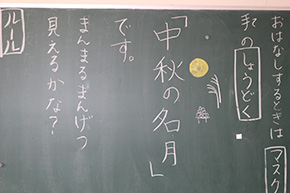 おはなしするときは マスク
手の しょうどく
「中秋の名月」
です。
まんまるまんげつ
見えるかな?
ルール